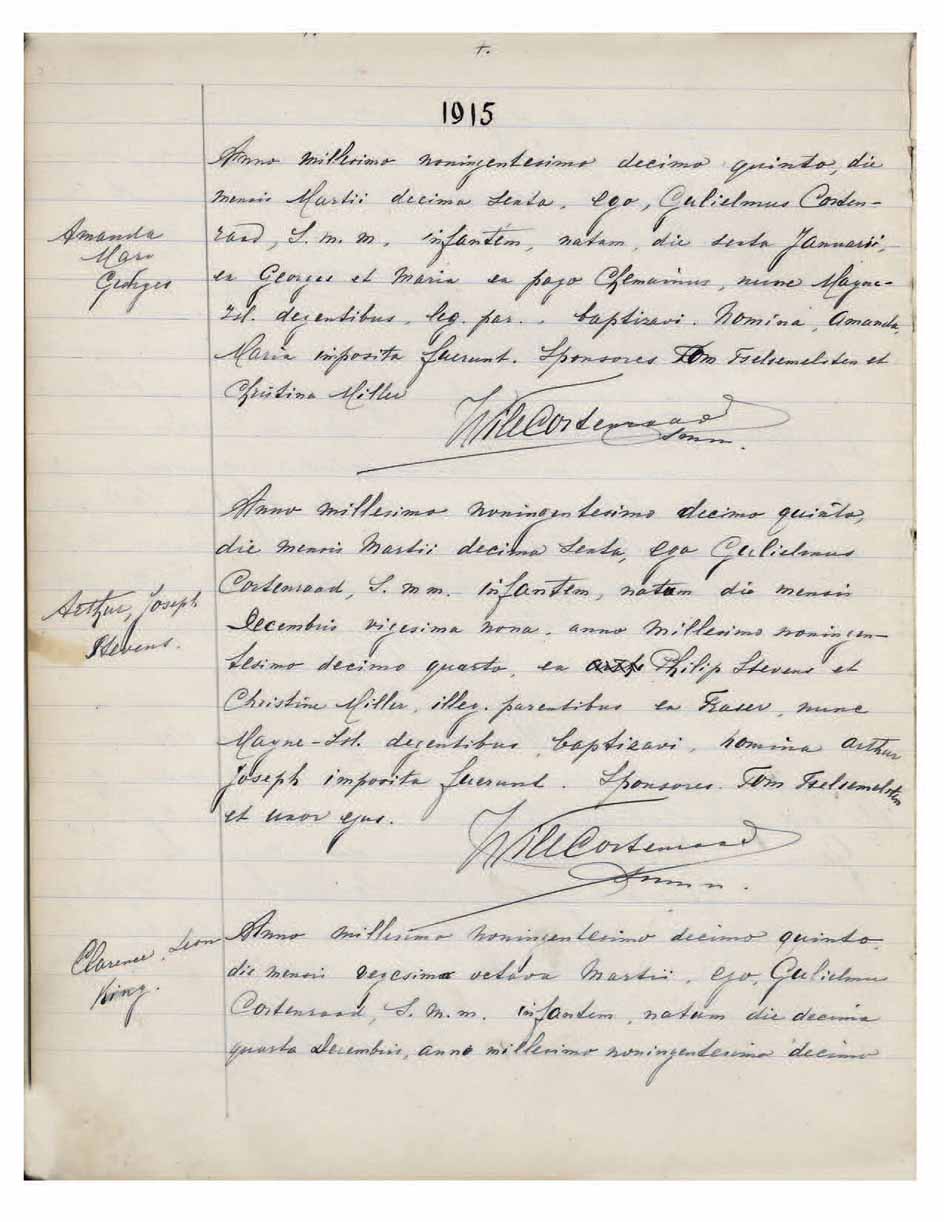 +.
1915
Anno millesimo noningentesimo decimo quinto, die
mensis Martii decima sexta, ego, Gulielmus Corten-
Amanda
raad, S. m. m. infantem, natam, die sexta Januarii,
Mary
ex Georges et Maria ex pago Chemainus, nunc Mayne-
Georges
Isl. degentibus, leg. par., baptizavi. Nomina, Amanda,
Maria imposita fuerunt. Sponsores Tom Tselsemelsten et
Christina Miller
Will Cortenraad
S.m.m.
Anno millesimo noningentesimo decimo quinto,
die mensis Martii decima sexta, ego Gulielmus
Cortenraad, S. m m. infantem, natum die mensis
Arthur, Joseph
Decembris vigesima nona, anno millesimo noningen-
Stevens.
tesimo decimo quarto, ex Philip Stevens et
Christine Miller, illeg. parentibus ex Fraser, nunc
Mayne-Isl. degentibus baptizavi, nomina Arthur
Joseph imposita fuerunt. Sponsores. Tom Tselsemelsten
et uxor ejus.
Will Cortenraad
S.m.m.
Anno millesimo noningentesimo decimo quinto.
Clarence, Leon
die mensis vegesima octava Martii, ego, Gulielmus
King.
Cortenraad, S. m. m. infantem, natum die decima
quarta Decembris, anno millesimo noningentesimo decimo